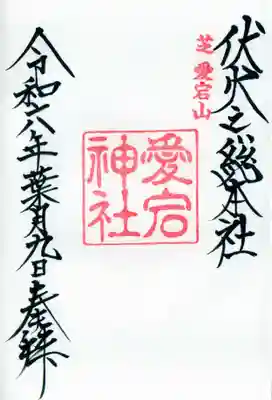 伏火之総本社
芝愛宕山
愛宕
神社
令和六年葉月九日奉拝